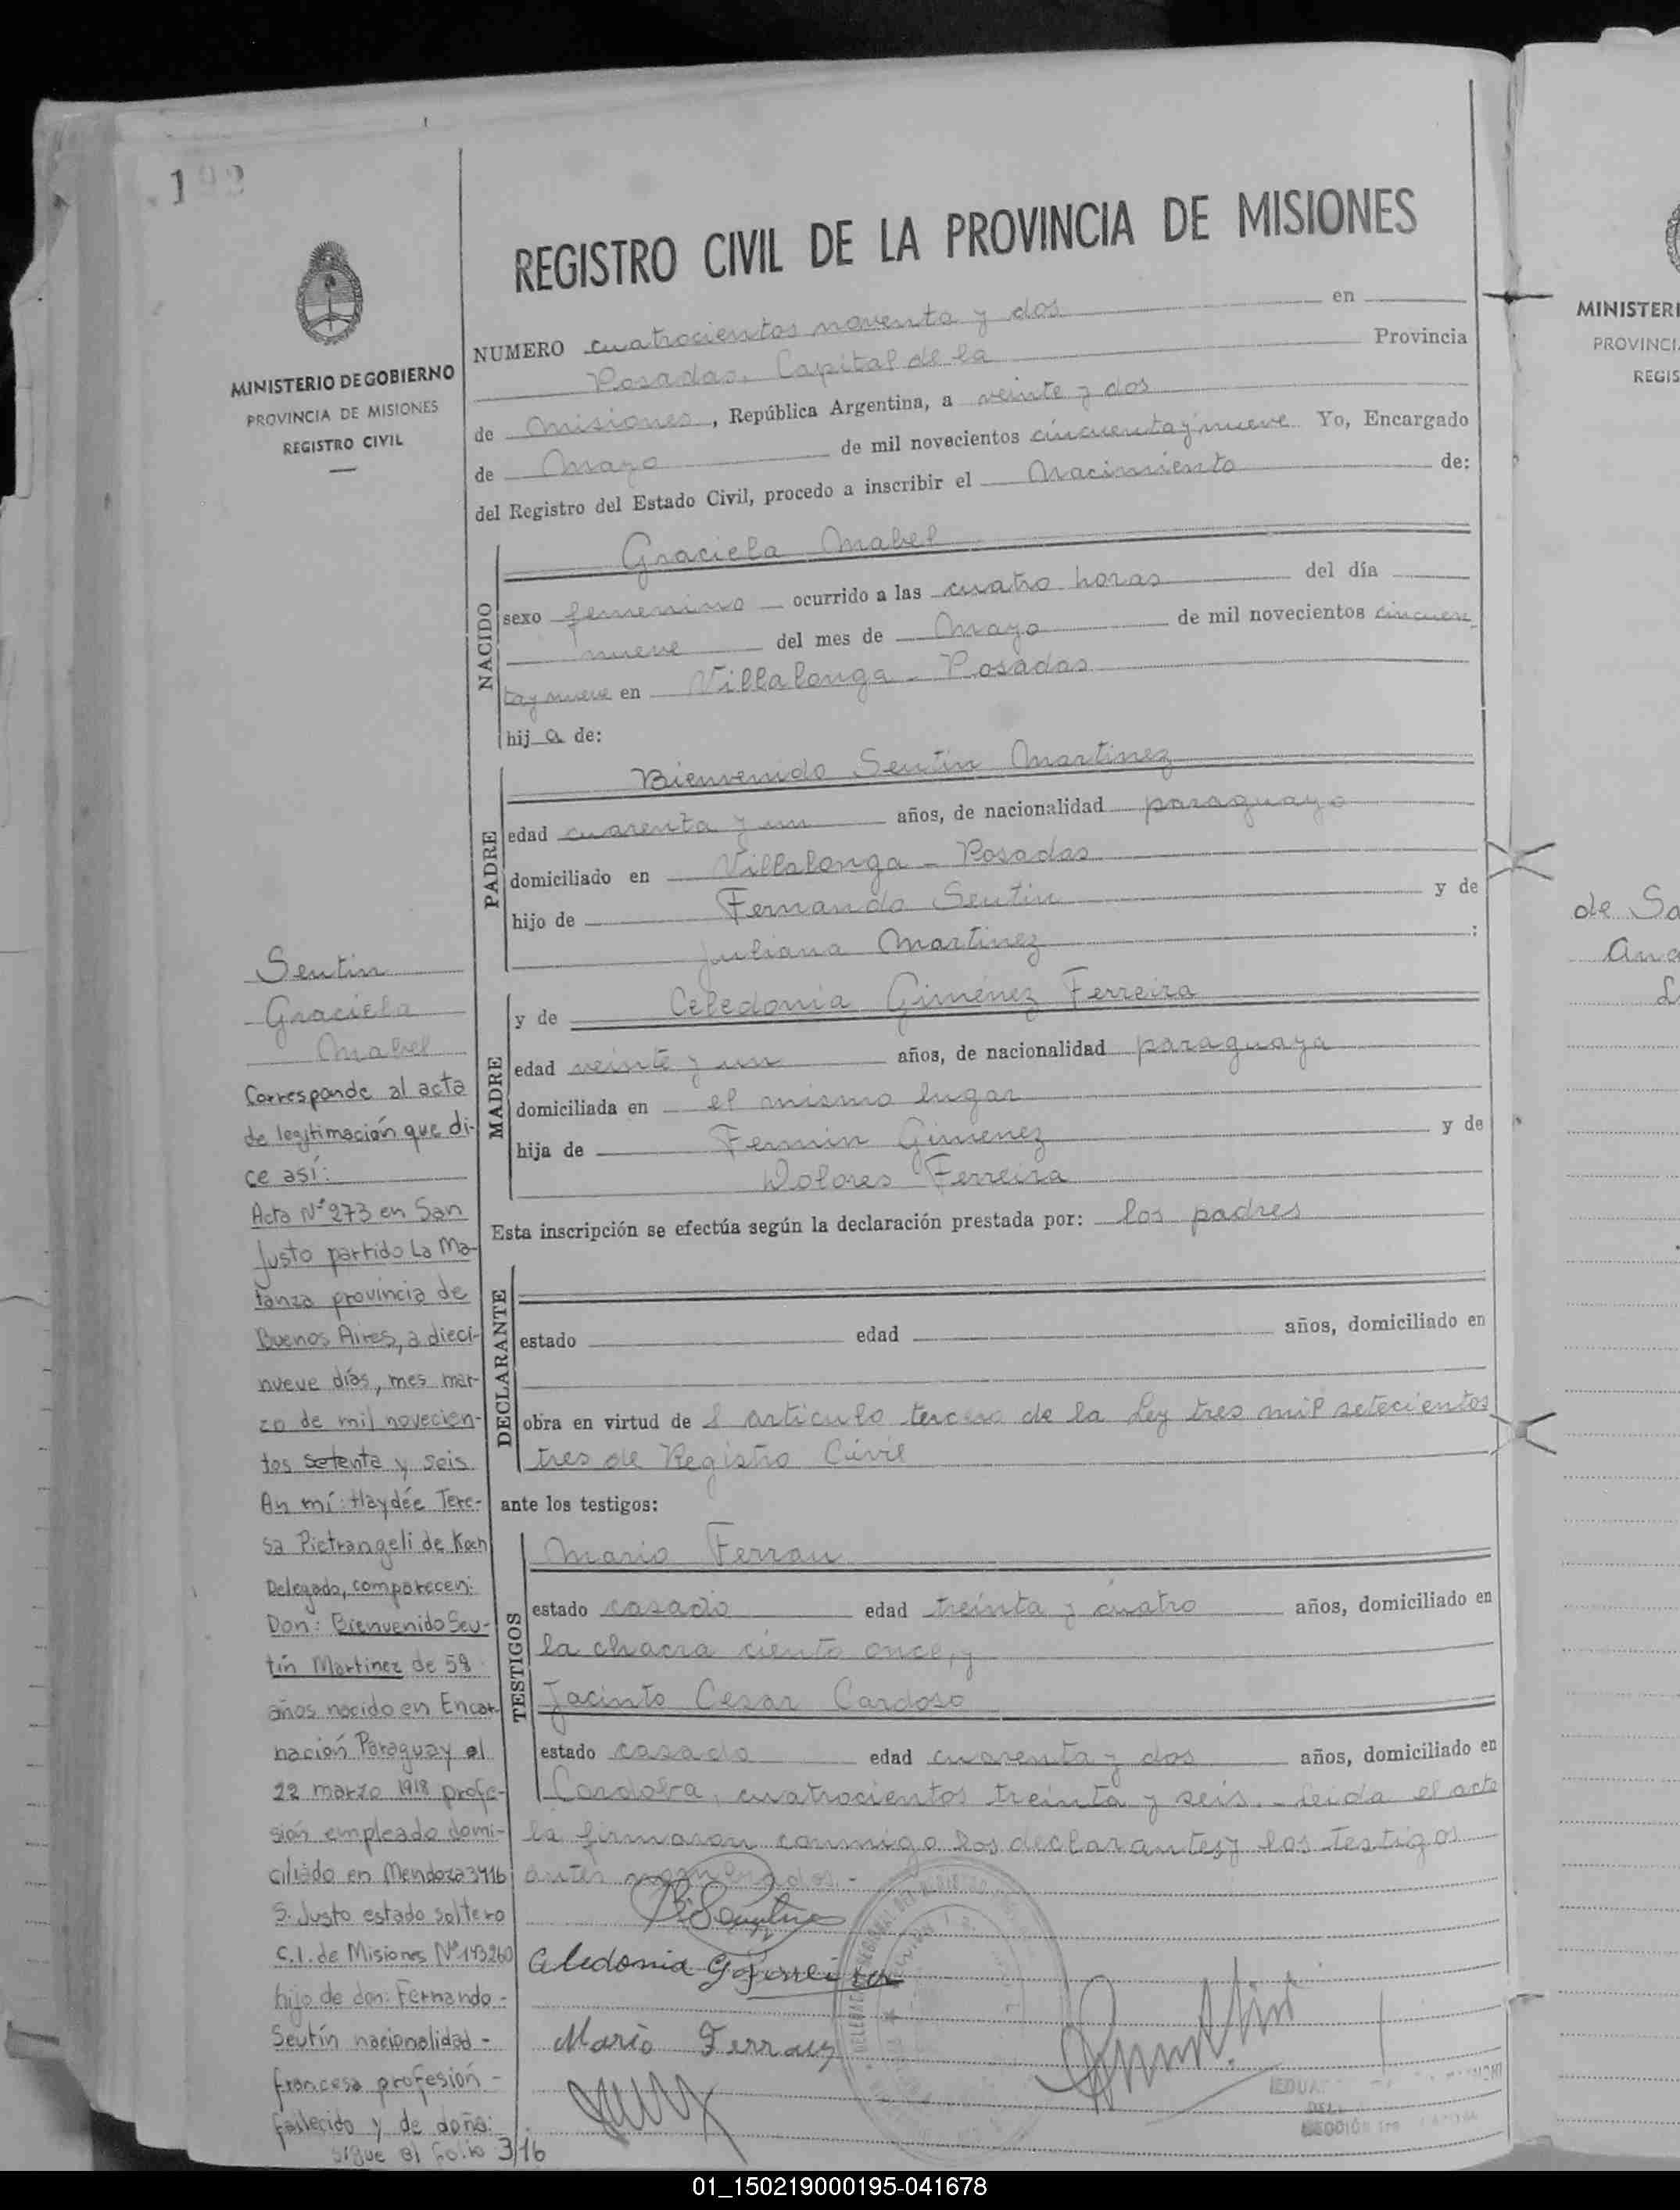 192
MINISTERIO DE GOBIERNO
PROVINCIA DE MISIONES
REGISTRO CIVIL
REGISTRO CIVIL DE LA PROVINCIA DE MISIONES
NUMERO cuatrocientos noventa y dos en
Posadas, Capital de la Provincia
de Misiones, República Argentina, a veinte y dos
de Mayo de mil novecientos cincuenta y nueve Yo, Encargado
del Registro del Estado Civil, procedo a inscribir el Nacimiento de:
NACIDO
Graciela Mabel
sexo femenino ocurrido a las cuatro horas del día
nueve del mes de Mayo de mil novecientos cincuen
ta y nueve en Villalonga - Posadas
hija de:
PADRE
Bienvenido Seutin Martinez
edad cuarenta y un años, de nacionalidad paraguayo
domiciliado en Villalonga - Posadas
hijo de Fernando Seutin y de
Juliana Martinez :
MADRE
y de Celedonia Giménez Ferreira
edad veinte y un años, de nacionalidad paraguaya
domiciliada en el mismo lugar
hija de Fermin Gimenez y de
Dolores Ferreira
Esta inscripción se efectúa según la declaración prestada por: los padres
DECLARANTE
estado edad años, domiciliado en
obra en virtud de l artículo tercero de la Ley tres mil setecientos
tres de Registro Civil
ante los testigos:
TESTIGOS
Mario Ferrau
estado casado edad treinta y cuatro años, domiciliado en
la chacra ciento once, y
Jacinto Cesar Cardoso
estado casado edad cuarenta y dos años, domiciliado en
Cordoba, cuatrocientos treinta y seis. - Leida el acta
la firmaron conmigo los declarantes y los testigos
antes nombrados. -
Celedonia G Ferreira
Mario Ferrau
Seutin
Graciela
Mabel
Corresponde al acta
de legitimación que di-
ce así:
Acta Nº 273 en San
Justo partido La Ma-
tanza provincia de
Buenos Aires, a dieci-
nueve días, mes mar-
zo de mil novecien-
tos setenta y seis
An mí: Haydée Tere-
sa Pietrangeli de Koch
Delegado, comparecen:
Don: Bienvenido Seu-
tín Martinez de 58
años nacido en Encar-
nación Paraguay el
22 marzo 1918 profe-
sión empleado domi-
ciliado en Mendoza 3416
S. Justo estado soltero
C.I. de Misiones Nº 143260
hijo de don: Fernando -
Seutín nacionalidad -
francesa profesión -
fallecido y de doña:
sigue al folio 316
MINISTERI
PROVINCI
REGIS
de Sa
Ana
01_150219000195-041678